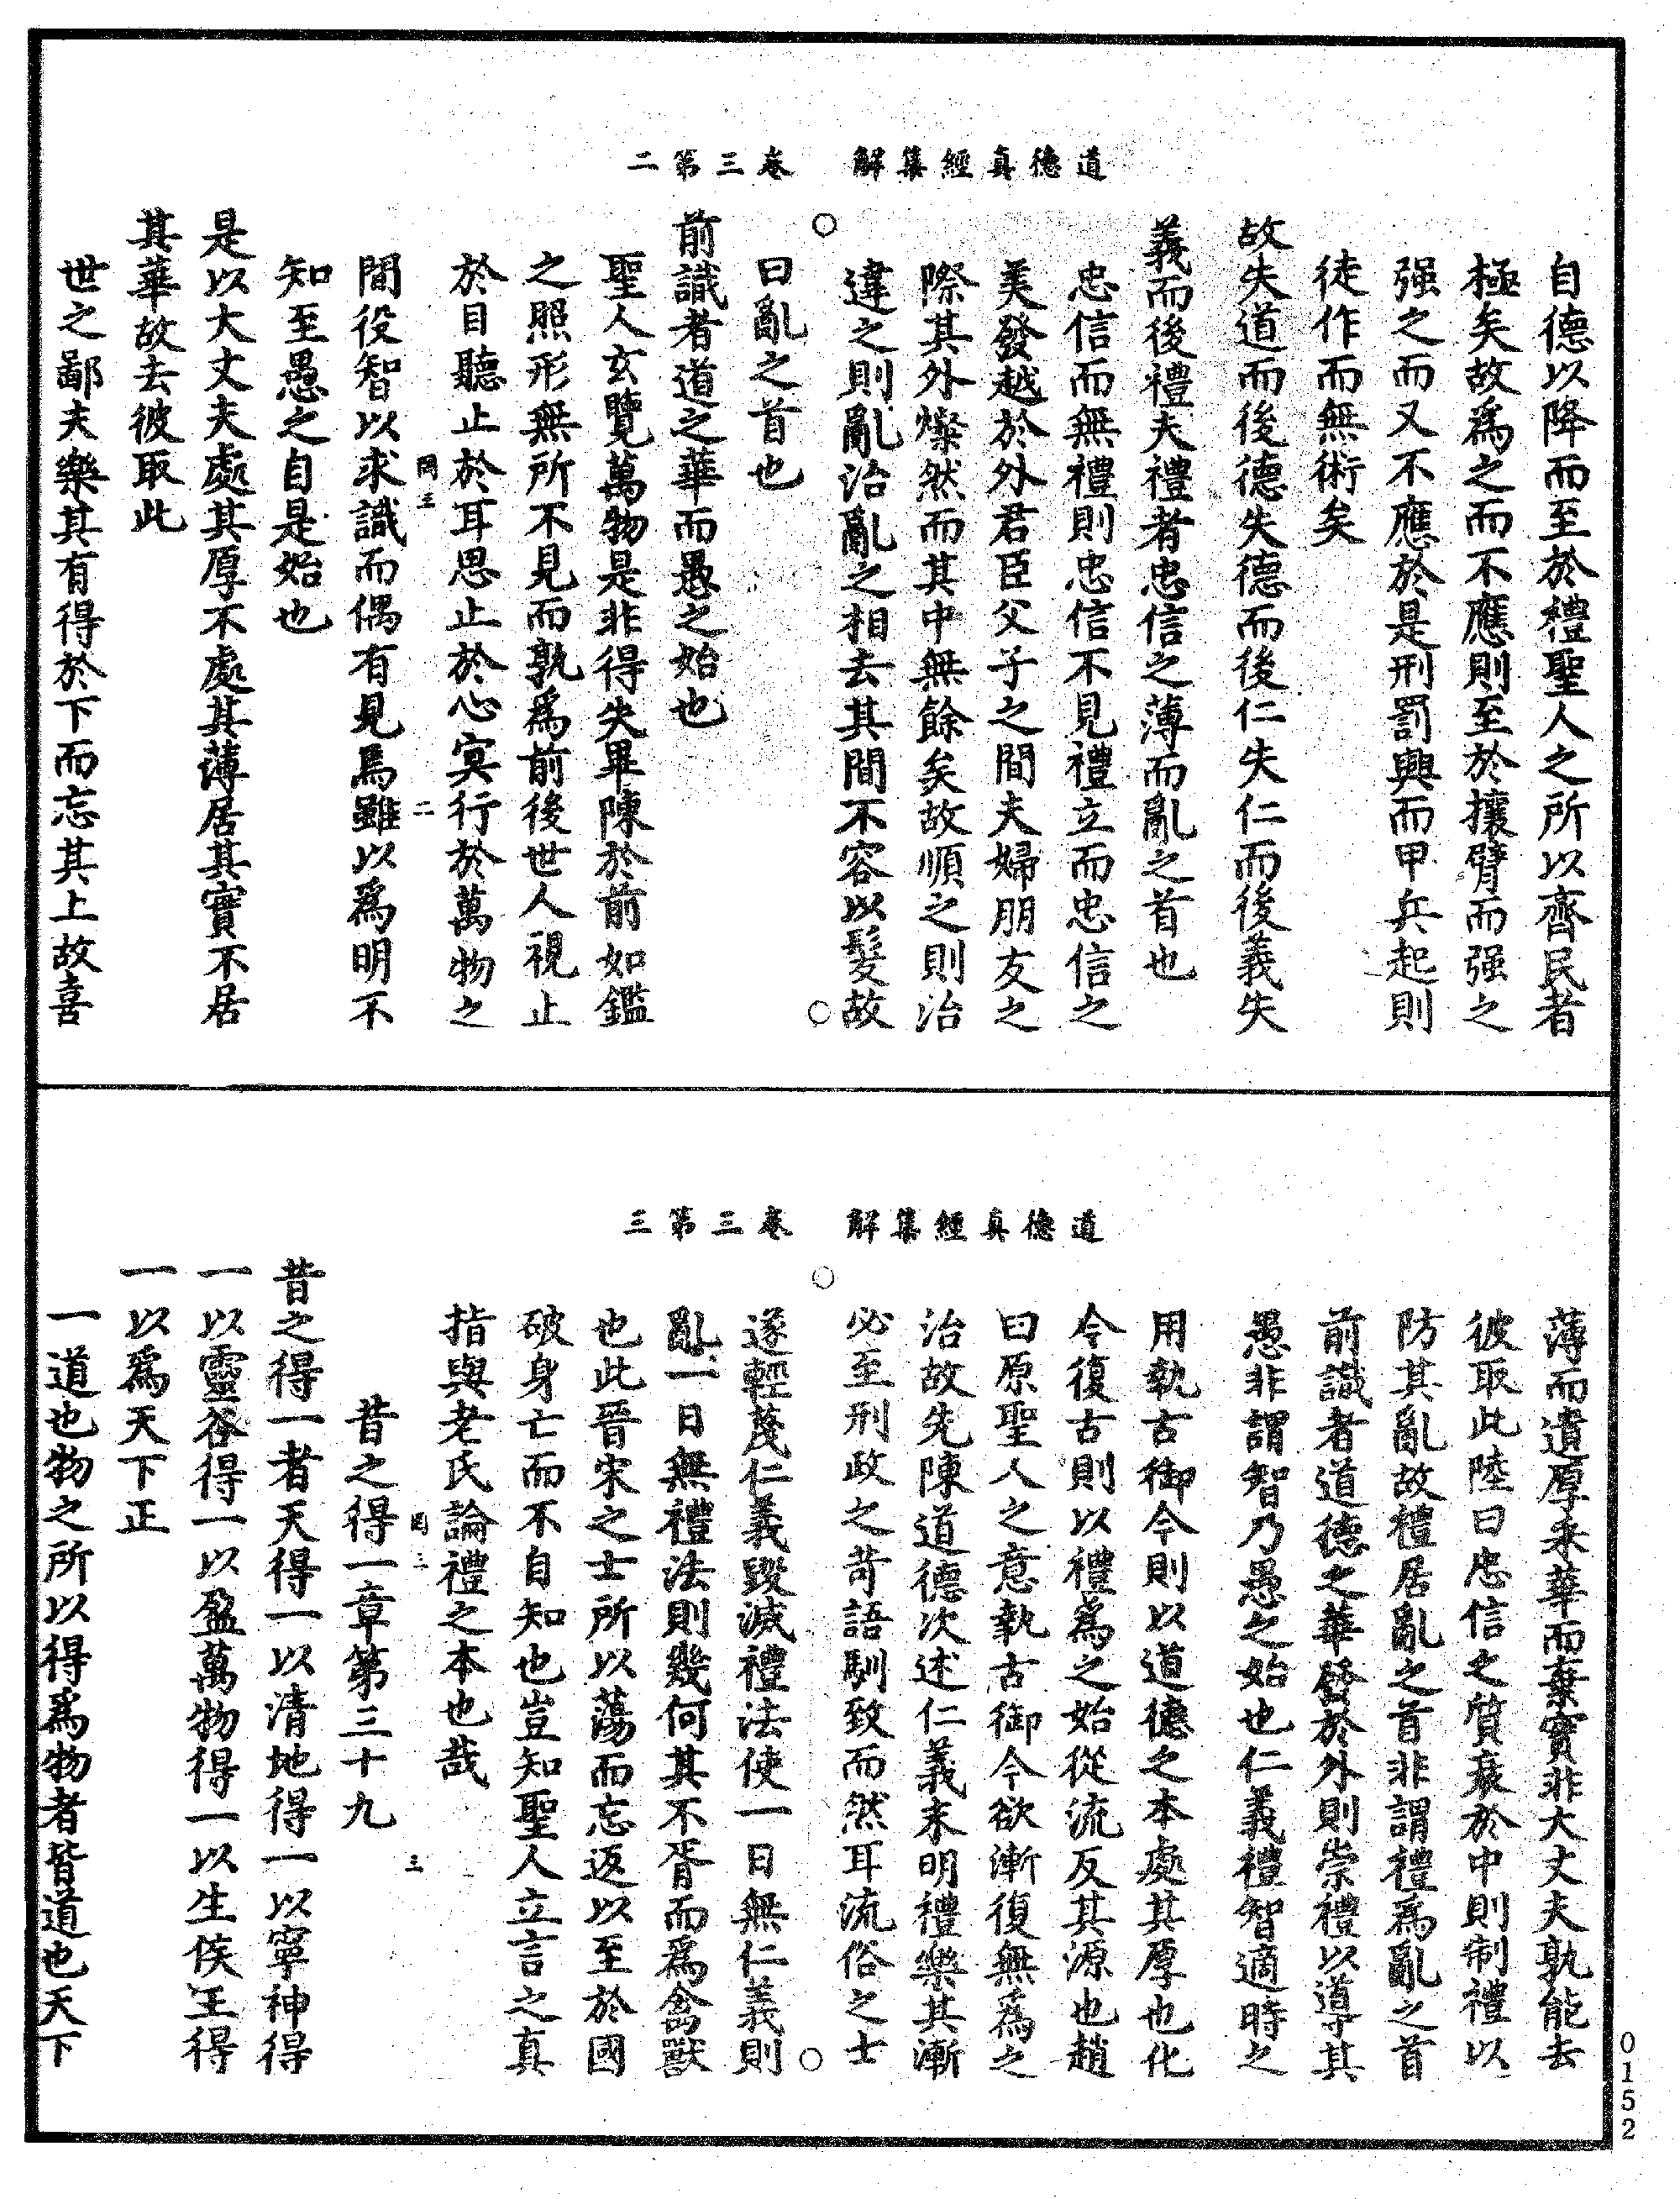 道德真經集解　卷三第二
自德以降而至於禮聖人之所以齊民者
極矣故爲之而不應則至於攘臂而强之
强之而又不應於是刑罰興而甲兵起則
徒作而無術矣
故失道而後德失德而後仁失仁而後義失
義而後禮夫禮者忠信之薄而亂之首也
忠信而無禮則忠信不見禮立而忠信之
美發越於外君臣父子之間夫婦朋友之
際其外燦然而其中無餘矣故順之則治
違之則亂治亂之相去其間不容以髮故
曰亂之首也
前識者道之華而愚之始也
聖人玄覽萬物是非得失畢陳於前如鑑
之照形無所不見而孰爲前後世人視止
於目聽止於耳思止於心冥行於萬物之
罔三　二
間役智以求識而偶有見焉雖以爲明不
知至愚之自是始也
是以大丈夫處其厚不處其薄居其實不居
其華故去彼取此
世之鄙夫樂其有得於下而忘其上故喜
道德真經集解　卷三第三
薄而遺厚采華而棄實非大丈夫孰能去
彼取此陸曰忠信之質衰於中則制禮以
防其亂故禮居亂之首非謂禮爲亂之首
前識者道德之華發於外則崇禮以導其
愚非謂智乃愚之始也仁義禮智適時之
用執古御今則以道德之本處其厚也化
今復古則以禮爲之始從流反其源也趙
曰原聖人之意執古御今欲漸復無爲之
治故先陳道德次述仁義末明禮樂其漸
必至刑政之苛語馴致而然耳流俗之士
遂輕蔑仁義毀滅禮法使一日無仁義則
亂一日無禮法則幾何其不胥而爲禽獸
也此晉宋之士所以蕩而忘返以至於國
破身亡而不自知也豈知聖人立言之真
指與老氏論禮之本也哉
罔三　三
昔之得一章第三十九
昔之得一者天得一以清地得一以寧神得
一以靈谷得一以盈萬物得一以生侯王得
一以爲天下正
一道也物之所以得爲物者皆道也天下
0152